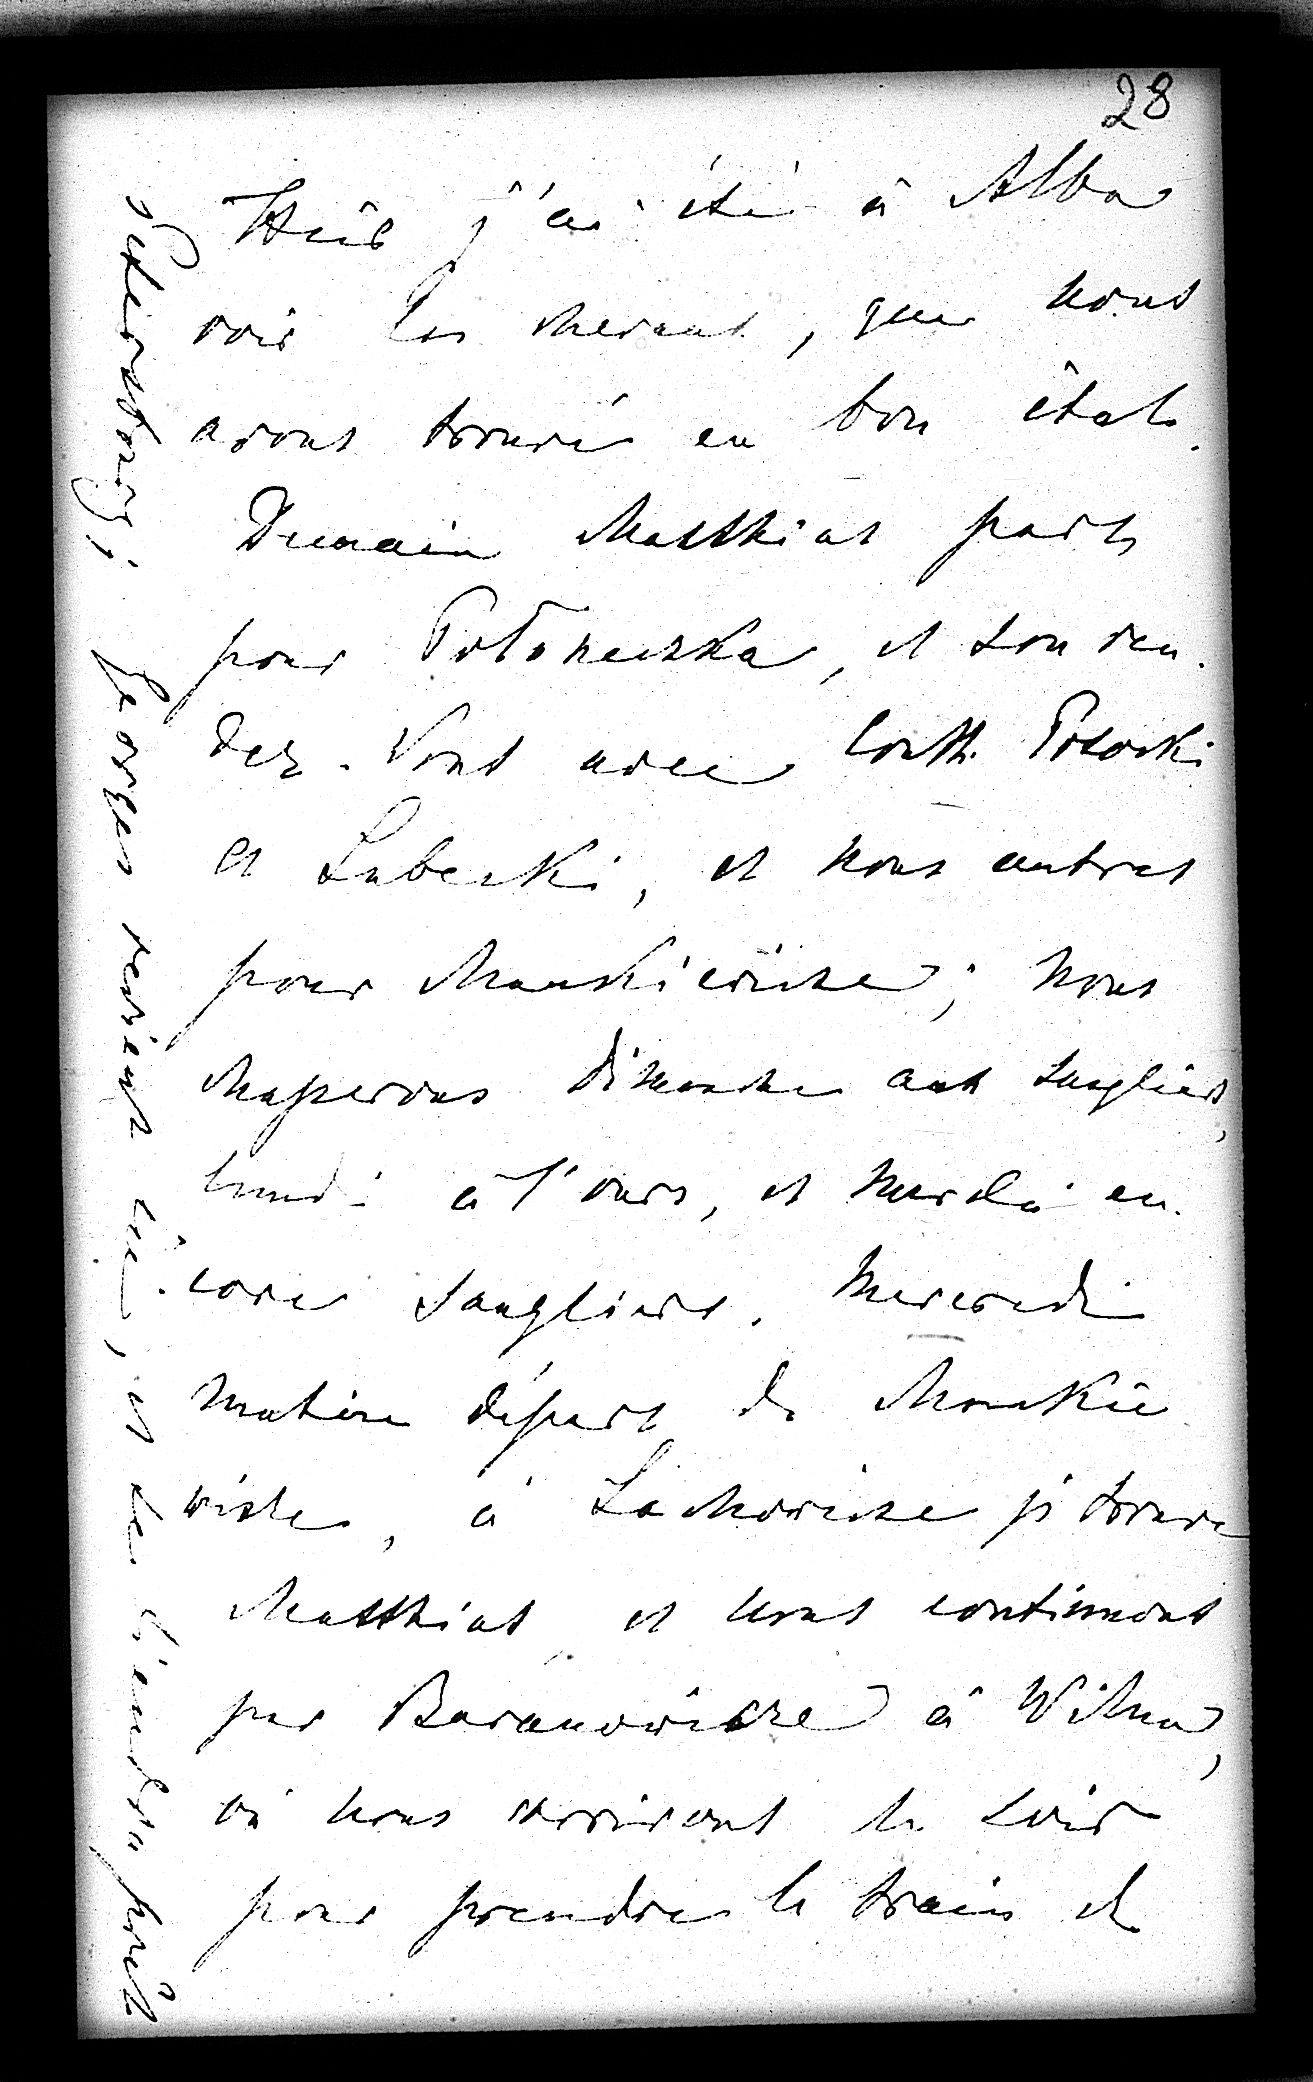 28
Hier j'ai été à Alba
voir les chevaux, que nous
avons trouvé en bon état.
Demain Matthias part
pour Połoneczka, et son ren-
dez-vous avec Potocki
et Lubecki, et nous autres
pour Mańkiewicze; nous
chasserons dimanche aux sangliers,
lundi à l'ours, et mardi en-
core sangliers. Mercredi
matin départ de Mańkie
wicze, à Lachowicze je trouve
Matthias et nous continuons
par Baranowicze à Wilna,
où nous arrivons le soir
pour prendre le train de
Petersbourg; Georges revient ici, et se tiendra prêt